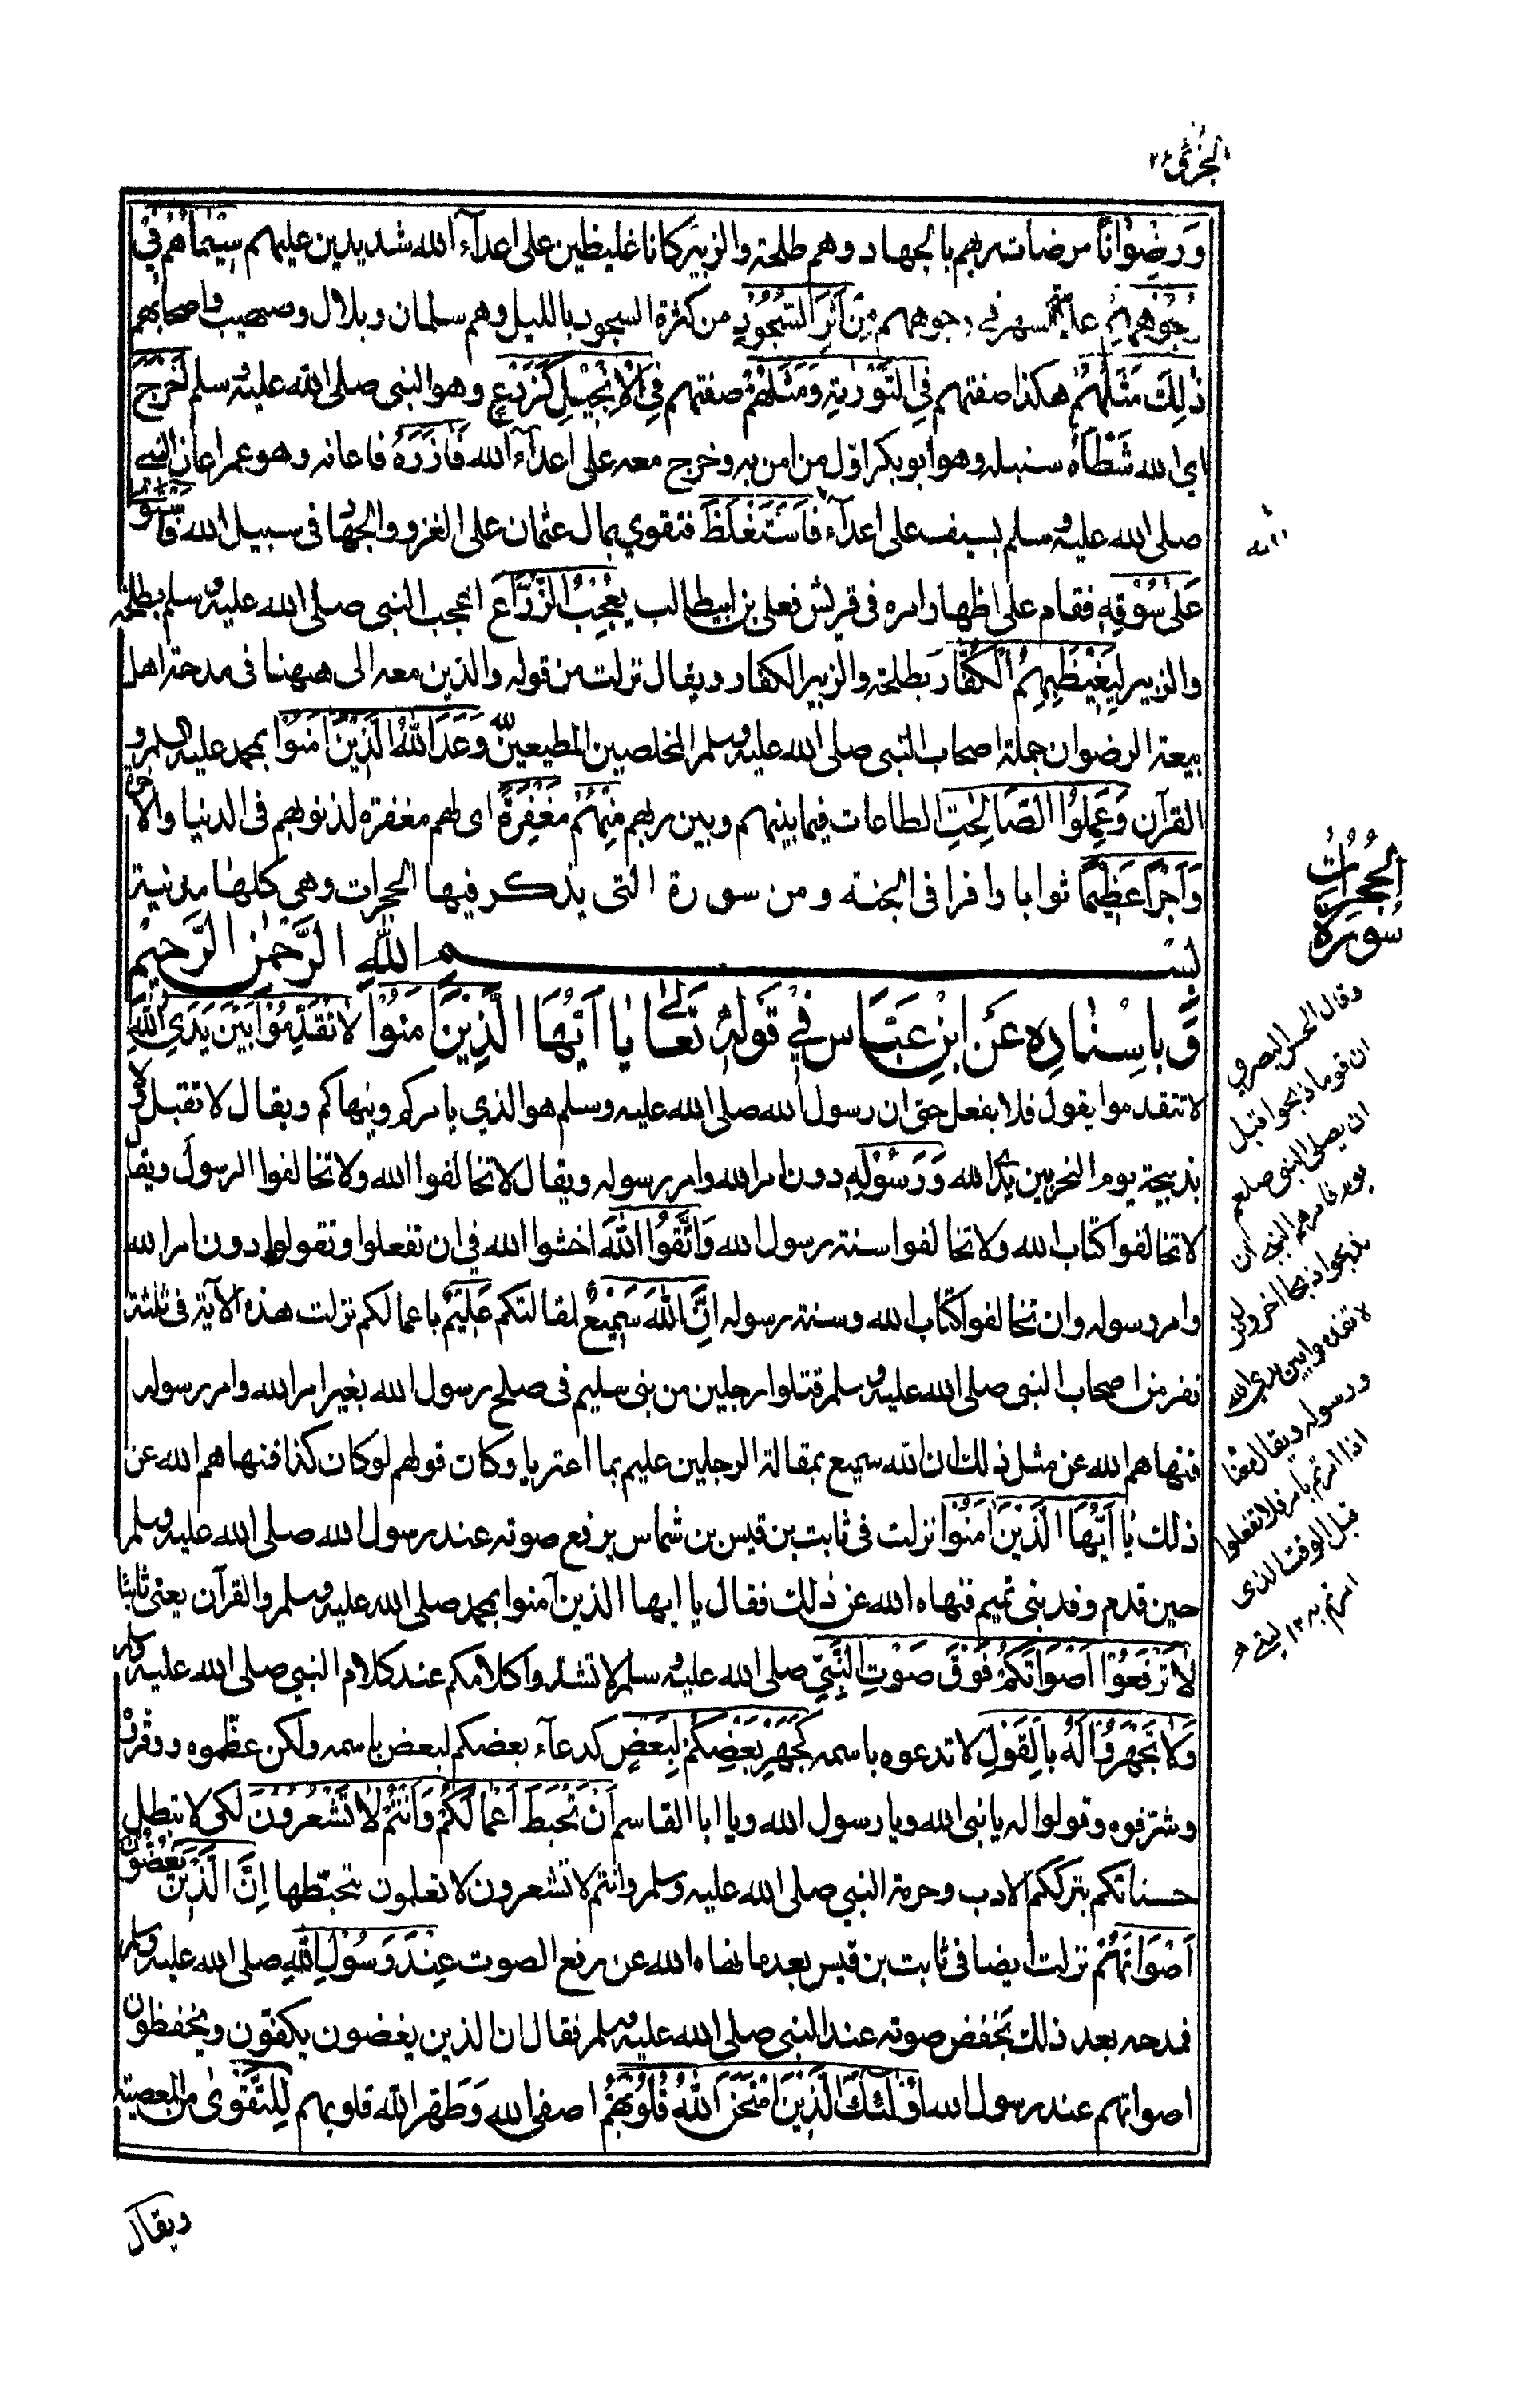 وَرِضْوَانًا مرضات ربهم بالجهاد وهم طلحة والزبير كانا غليظين على اعدآء الله شديدين عليهم سِيْمَاهُمْ فِيْ
وُجُوْهِهِمْ علامة السهر في وجوههم مِنْ اَثَرِ السُّجُوْدِ من كثرة السجود بالليل وهم سلمان وبلال وصهيب واصحابهم
ذٰلِكَ مَثَلُهُمْ هكذا صفتهم فِي التَّوْرٰىةِ وَمَثَلُهُمْ صفتهم فِي الْاِنْجِيْلِ كَزَرْعٍ وهو النبى صلى الله عليه وسلم اَخْرَجَ
اي الله شَطْأَهُ سنبله وهو ابو بكر اوّل من امن به وخرج معه على اعدآء الله فَاٰزَرَهُ فاعانه وهو عمر اعان النبي
صلى الله عليه وسلم بسيفه على اعدآء فَاسْتَغْلَظَ فتقوي بمال عثمان على الغزو والجهاد فى سبيل الله فَاسْتَوٰى
عَلٰى سُوْقِهٖ فقام على اظهار امره فى قريش فعلى بن ابيطالب يُعْجِبُ الزُّرَّاعَ اعجب النبى صلى الله عليه وسلم بطلحة
والزبير لِيَغِيْظَ بِهِمُ الْكُفَّارَ بطلحة والزبير الكفار ويقال نزلت من قوله والذين معه الى ههنا فى مدحة اهل
بيعة الرضوان جملة اصحاب النبى صلى الله عليه وسلم المخلصين المطيعين لله وَعَدَ اللهُ الَّذِيْنَ اٰمَنُوْا بمحمد عليه السلم و
القرآن وَعَمِلُوا الصَّالِحٰتِ الطاعات فيما بينهم وبين ربهم مِنْهُمْ مَغْفِرَةً اى لهم مغفرة لذنوبهم فى الدنيا والاخرة
وَاَجْرًا عَظِيْمًا ثوابا وافرا فى الجنة ومن سورة التى يذكر فيها الحجرات وهى كلها مدنية
بِسْمِ اللهِ الرَّحْمٰنِ الرَّحِيْمِ
وَبِاِسْنَادِهِ عَنِ ابْنِ عَبَّاسٍ فِيْ قَوْلِهٖ تَعَالٰى يَا اَيُّهَا الَّذِيْنَ اٰمَنُوْا لَا تُقَدِّمُوْا بَيْنَ يَدَيِ اللهِ
لا تتقدموا بقول فلا بفعل حتى ان رسول الله صلى الله عليه وسلم هو الذي يامركم وينهاكم ويقال لا تقبلوا
بذبيحة يوم النحر بين يدى الله وَرَسُوْلِهٖ دون امر الله وامر رسوله ويقال لا تخالفوا الله ولا تخالفوا الرسول ويقال
لا تخالفوا كتاب الله ولا تخالفوا سنة رسول الله وَاتَّقُوا اللهَ اخشوا الله في ان تفعلوا وتقولوا دون امر الله
وامر رسوله وان تخالفوا كتاب الله وسنة رسوله اِنَّ اللهَ سَمِيْعٌ لمقالتكم عَلِيْمٌ باعمالكم نزلت هذه الآية فى ثلثة
نفر من اصحاب النبى صلى الله عليه وسلم قتلوا رجلين من بنى سليم فى صلح رسول الله بغير امر الله وامر رسوله
فنهاهم الله عن مثل ذلك ان الله سميع بمقالة الرجلين عليم بما اعتريا وكان قولهم لو كان كذا فنهاهم الله عن
ذلك يَا اَيُّهَا الَّذِيْنَ اٰمَنُوْا نزلت فى ثابت بن قيس بن شماس برفع صوته عند رسول الله صلى الله عليه وسلم
حين قدم وفد بنى تميم فنهاه الله عن ذلك فقال يا ايها الذين آمنوا بمحمد صلى الله عليه وسلم والقرآن يعنى ثابتا
لَا تَرْفَعُوْا اَصْوَاتَكُمْ فَوْقَ صَوْتِ النَّبِيِّ صلى الله عليه وسلم لا تشدوا كلامكم عند كلام النبي صلى الله عليه وسلم
وَلَا تَجْهَرُوْا لَهُ بِالْقَوْلِ لا تدعوه باسمه كَجَهْرِ بَعْضِكُمْ لِبَعْضٍ كدعآء بعضكم لبعض باسمه ولكن عظموه ووقروه
وشرفوه وقولوا له يا نبى الله ويا رسول الله ويا ابا القاسم اَنْ تَحْبَطَ اَعْمَالُكُمْ وَاَنْتُمْ لَا تَشْعُرُوْنَ لكى لا تبطل
حسناتكم بترككم الادب وحرمة النبي صلى الله عليه وسلم وانتم لا تشعرون لا تعلمون بتحبّطها اِنَّ الَّذِيْنَ يَغُضُّوْنَ
اَصْوَاتَهُمْ نزلت ايضا فى ثابت بن قيس بعد ما نهاه الله عن رفع الصوت عِنْدَ رَسُوْلِ اللهِ صلى الله عليه وسلم
فمدحه بعد ذلك بخفض صوته عند النبى صلى الله عليه وسلم فقال ان الذين يغضون يكفون ويخفظون
اصواتهم عند رسول الله اُولٰئِكَ الَّذِيْنَ امْتَحَنَ اللهُ قُلُوْبَهُمْ اصفى الله وَطَهّر الله قلوبهم لِلتَّقْوٰى من المعصية
ويقال
سورة
الحجرات
وقال الحسن البصري
ان قوما ذبحوا قبل
ان يصلى النبى صلعم
يوم فامرهم النبى ان
يذبحوا ذبحا اخر ونزل
لا تقدموا بين يدى الله
ورسوله ويقال معنا
اذا امرتم بامر فلا تفعلوا
قبل الوقت الذى
امرتم به ١٢